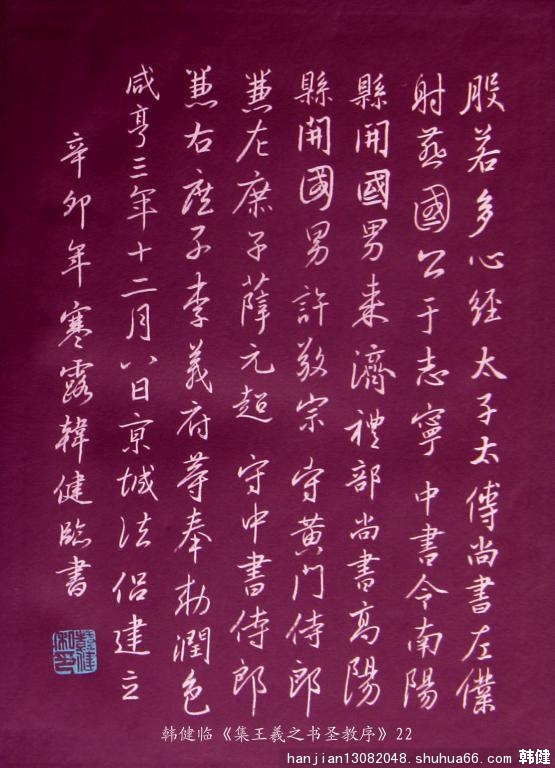 般若多心經太子太傅尚書左僕
射燕國公于志寧 中書令南陽
縣開國男来濟禮部尚書高陽
縣開國男許敬宗 守黄門侍郎
兼左庶子薛元超 守中書侍郎
兼右庶子李義府等奉勅潤色
咸亨三年十二月八日京城法侣建立
辛卯年寒露韓健臨書
韩健临《集王羲之书圣教序》22
hanjian13082048.shuhua66.com 韩健